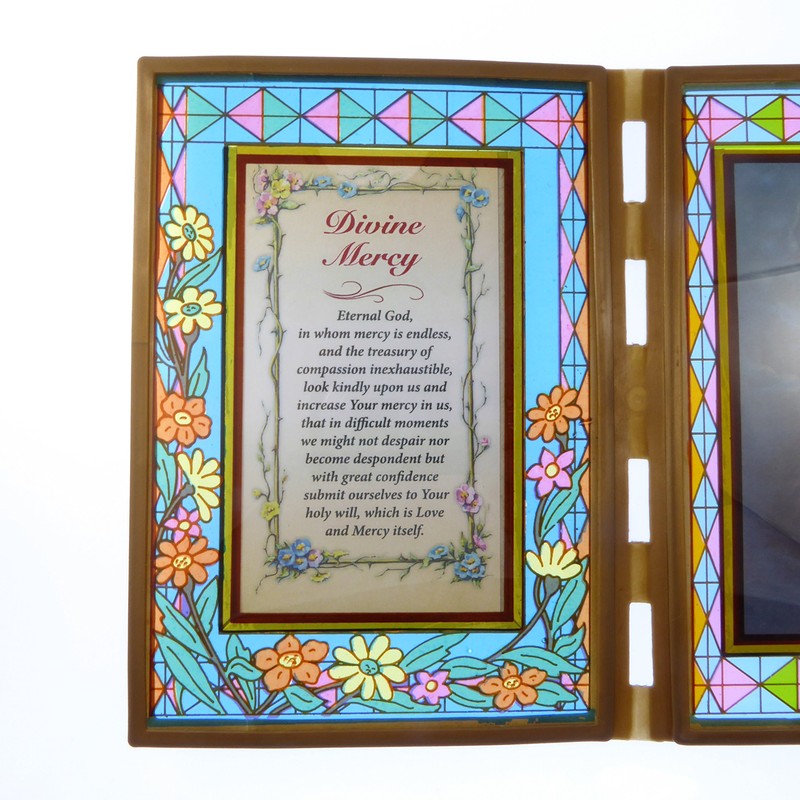 Divine
Mercy
Eternal God,
in whom mercy is endless,
and the treasury of
compassion inexhaustible,
look kindly upon us and
increase Your mercy in us,
that in difficult moments
we might not despair nor
become despondent but
with great confidence
submit ourselves to Your
holy will, which is Love
and Mercy itself.